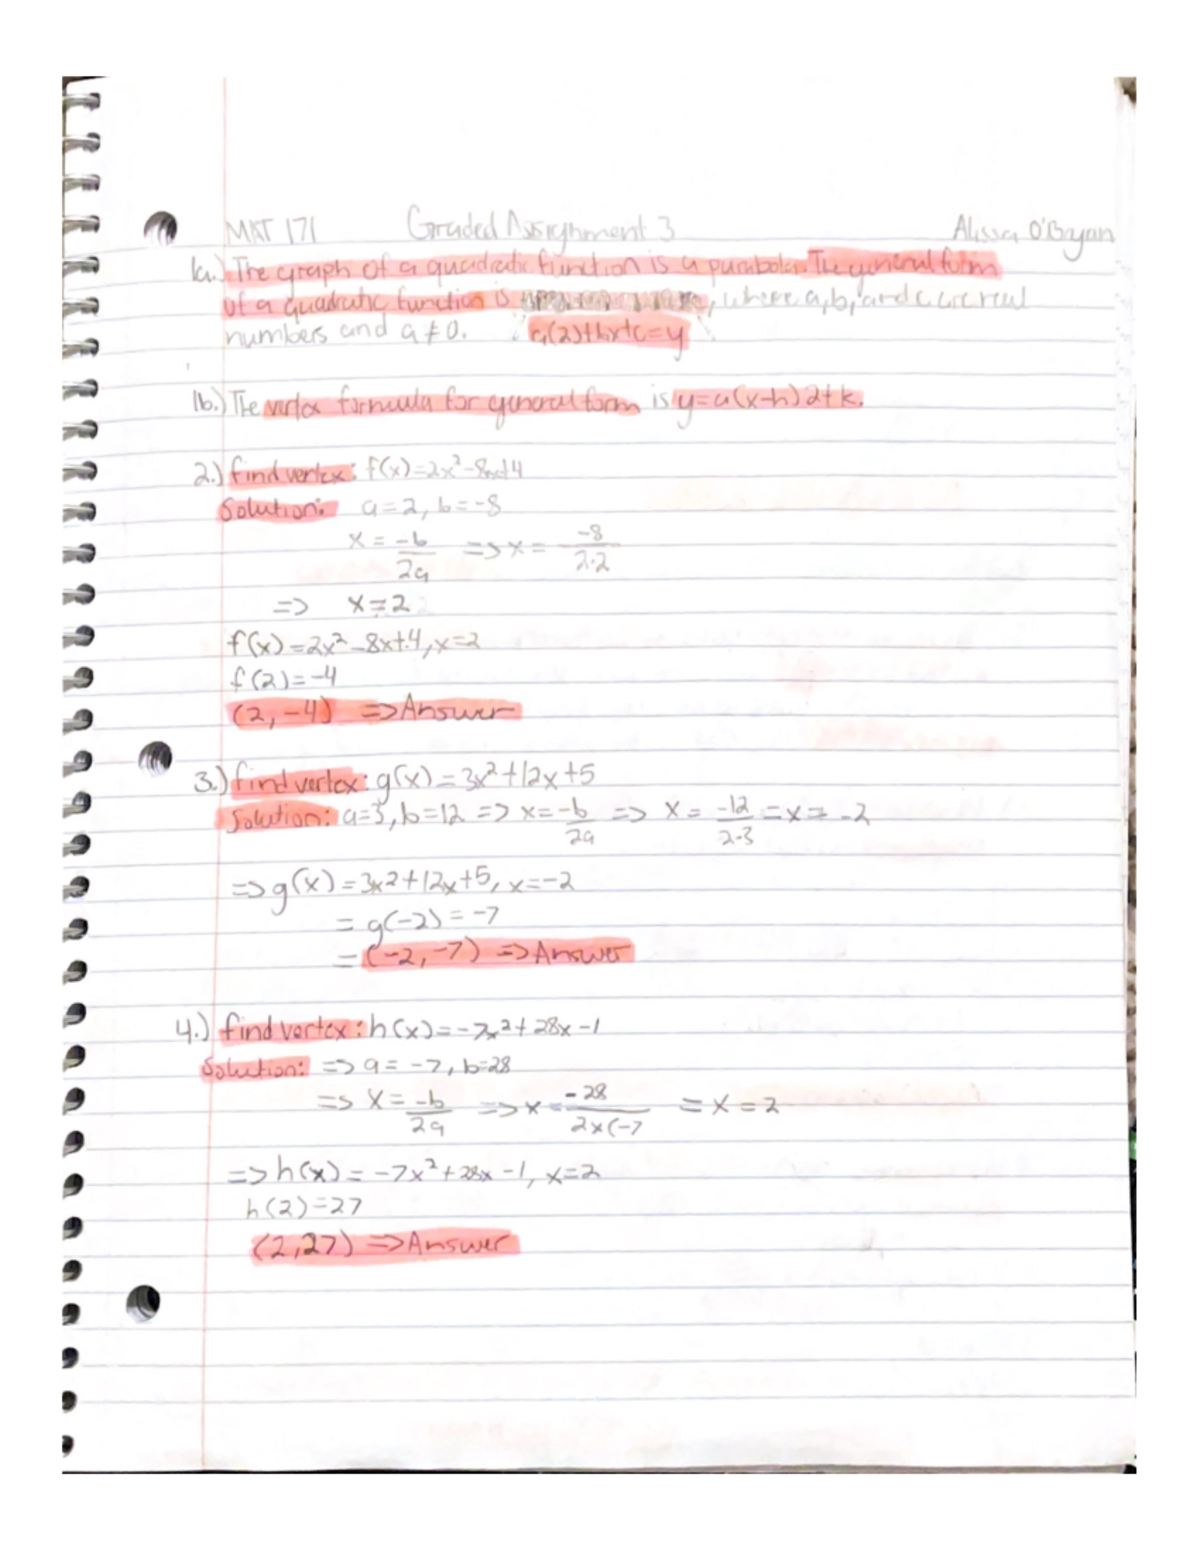 MAT 171 Graded Assignment 3 Alissa O'Bryan
1a.) The graph of a quadratic function is a parabola. The general form
of a quadratic function is , where a, b, and c are real
numbers and a ≠ 0. a(2)+bx+c=y
1b.) The vertex formula for general form is y=a(x-h)2+k.
2.) find vertex: f(x)=2x²-8x+4
Solution: a=2, b=-8
x = -b/2a => x = -8/2·2
=> x=2
f(x)=2x²-8x+4, x=2
f(2)=-4
(2,-4) => Answer
3.) find vertex: g(x)=3x²+12x+5
Solution: a=3, b=12 => x=-b/2a => x = -12/2·3 = x = -2
=> g(x)=3x2+12x+5, x=-2
= g(-2)=-7
= (-2,-7) => Answer
4.) find vertex: h(x)=-7x²+28x-1
Solution: => a=-7, b=28
=> x = -b/2a => x = -28/2x(-7 = x=2
=> h(x)=-7x²+28x-1, x=2
h(2)=27
(2,27) => Answer